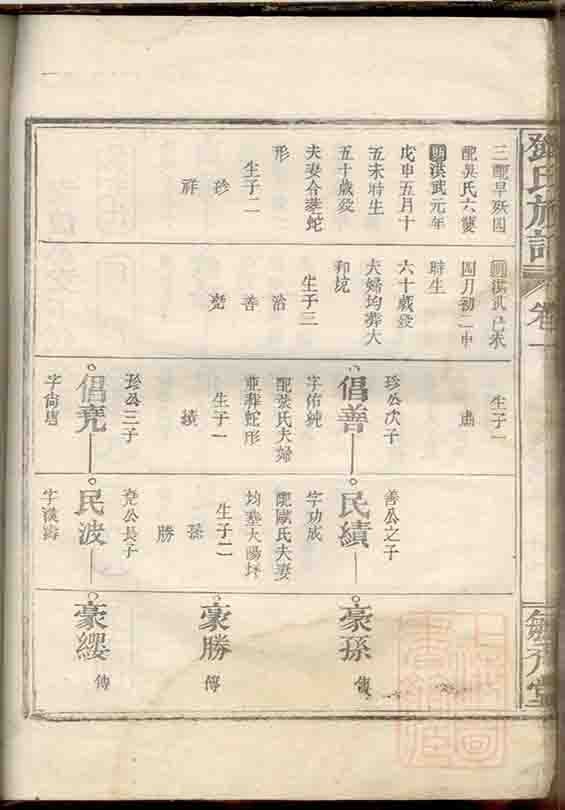 鄧氏族譜
卷一
劍光堂
三配早殀四
配吳氏六雙
明洪武元年
戊申五月十
五未時生
五十歲歿
夫妻合塟蛇
形
生子二
珍
祥
四月初二申
時生
六十歲歿
夫婦均葬大
和坑
生子三
治
善
堯
生子一
珍公次子
倡善
字佑純
配蔡氏夫婦
並葬蛇形
生子一
績
珍公三子
倡堯
字尙唐
善公之子
民績
字功成
配歐氏夫妻
均塟大陽坪
生子二
孫
勝
堯公長子
民波
字漢濤
豪孫
傳
豪勝
傳
豪纓
傳